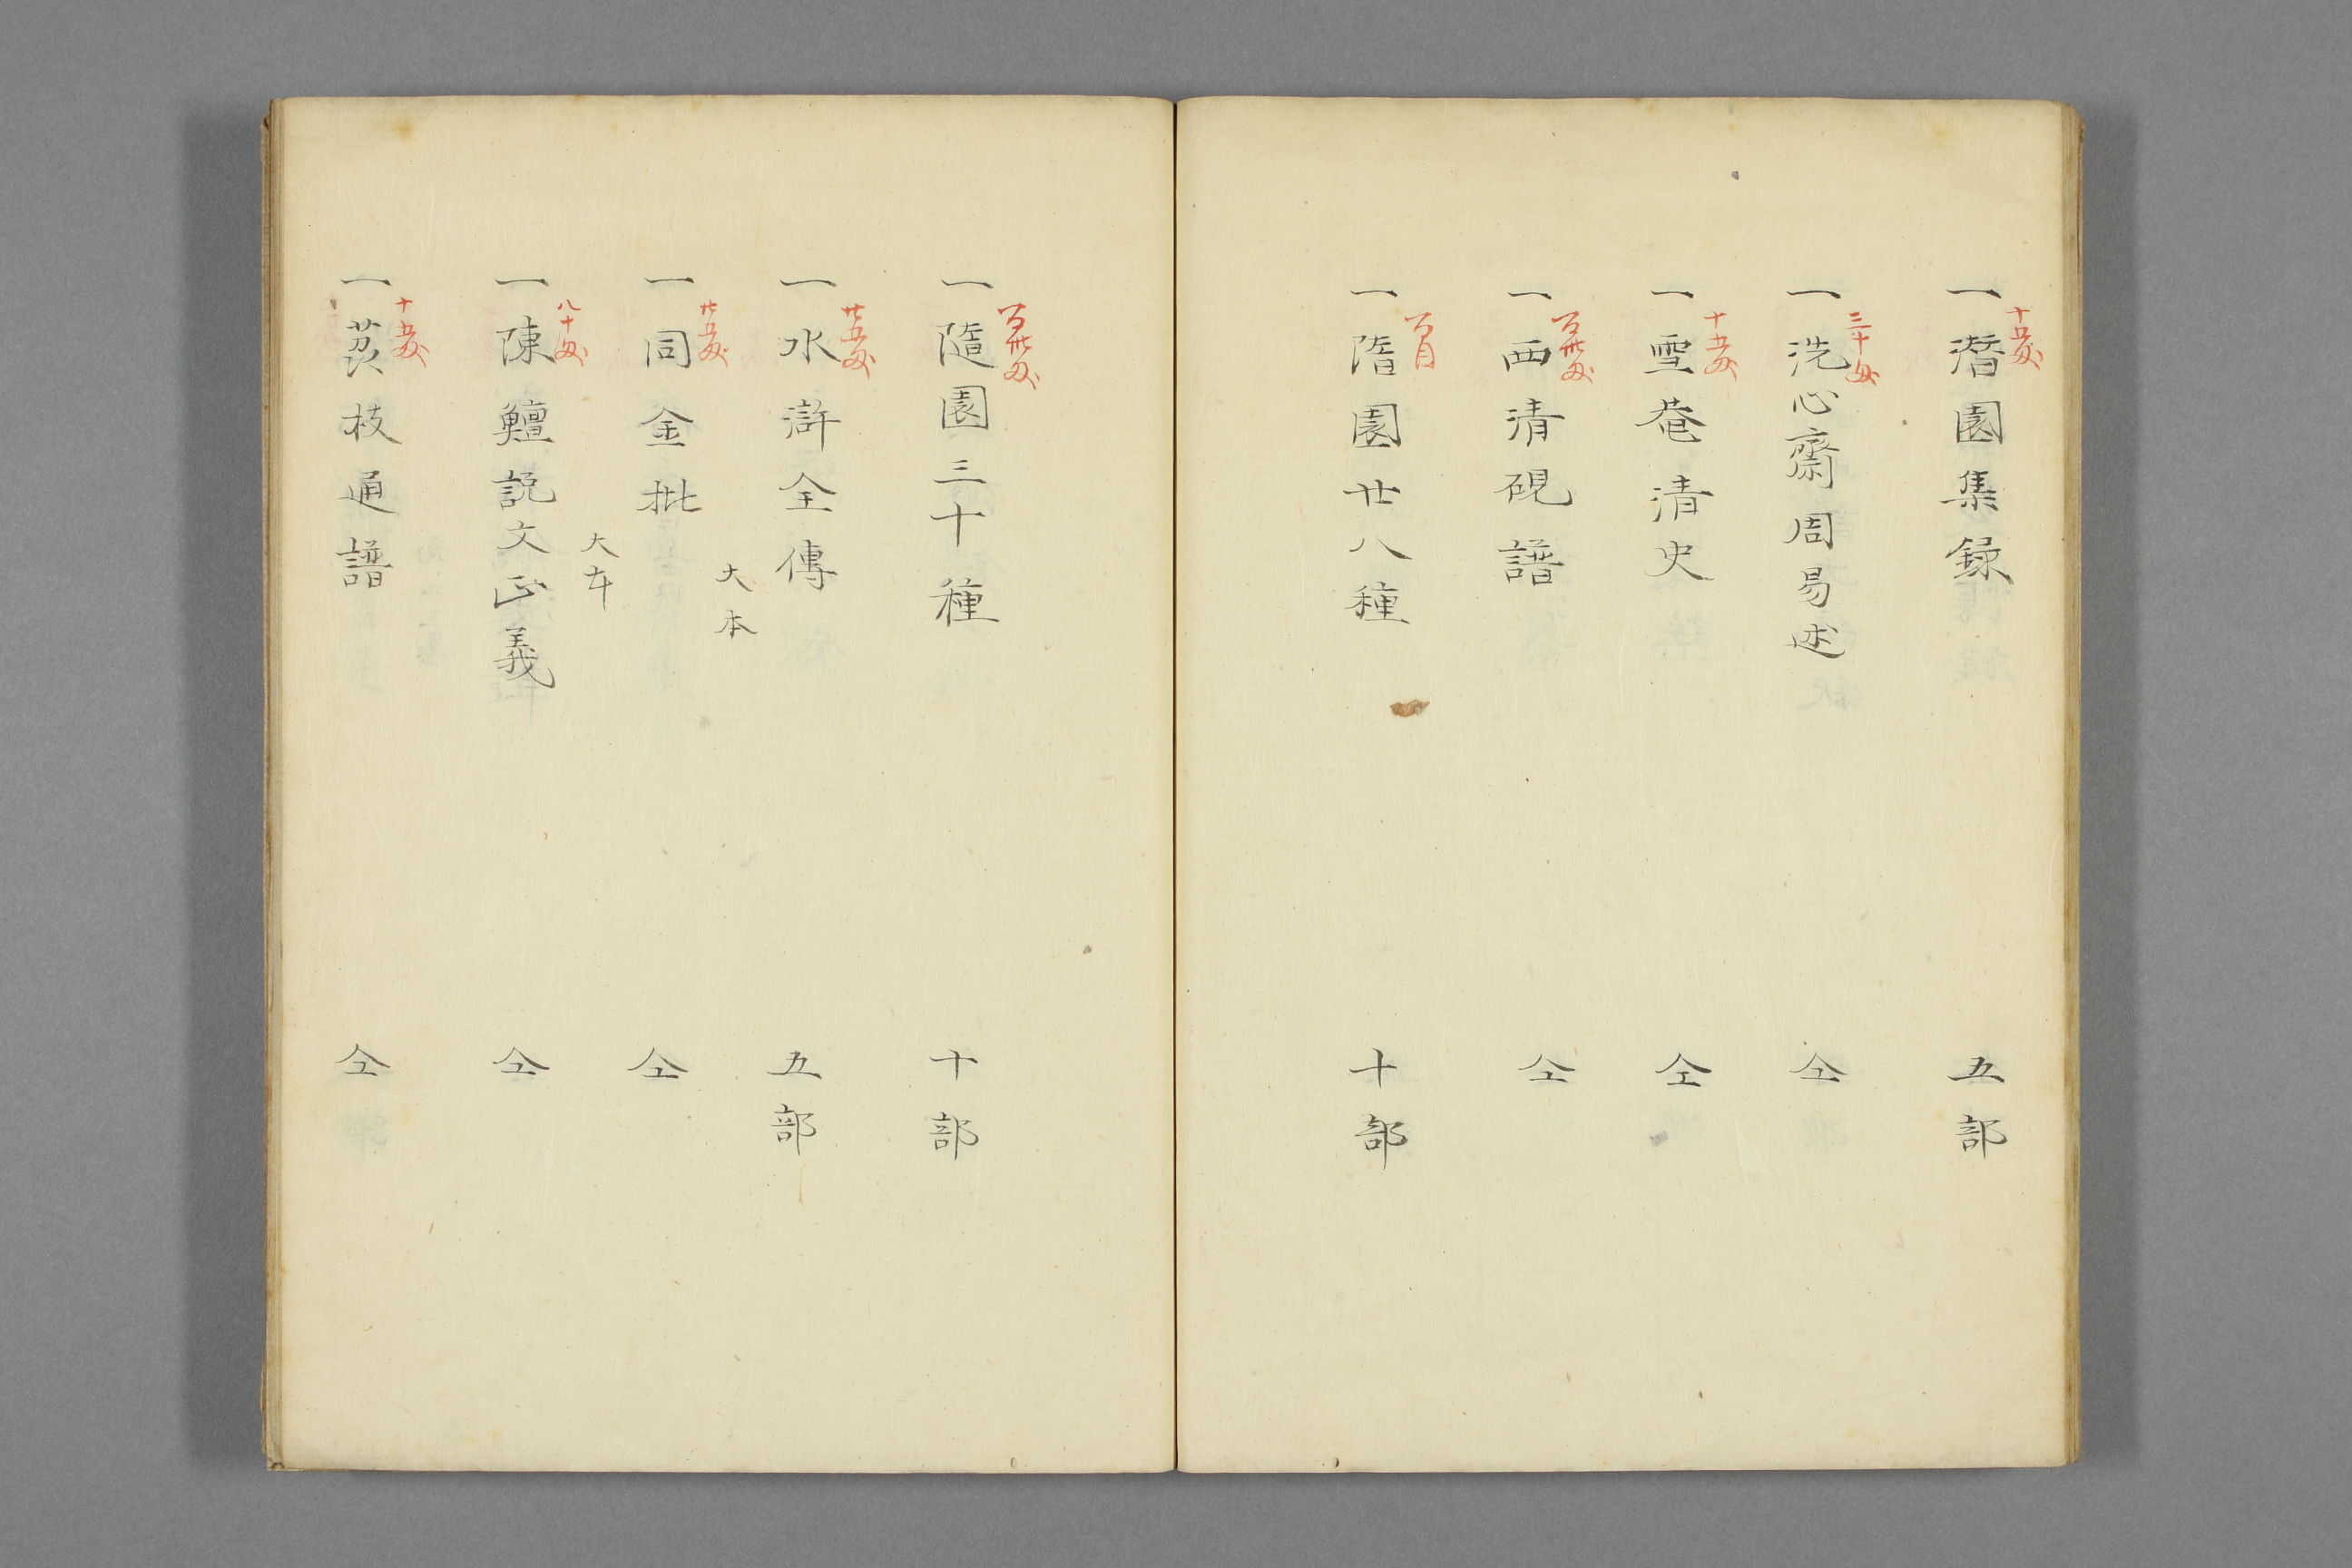 一潜園集録 五部
十五匁
一洗心齋周易述 仝
三十匁
一雪菴清史 仝
十五匁
一西清硯譜 仝
百卅匁
一隨園廿八種 十部
百目
一隨園三十種 十部
百卅匁
一水滸全傳 大本 五部
廿五匁
一同金批 大本 仝
廿五匁
一陳鱣説文正義 仝
八十匁
一茘枝通譜 仝
十五匁